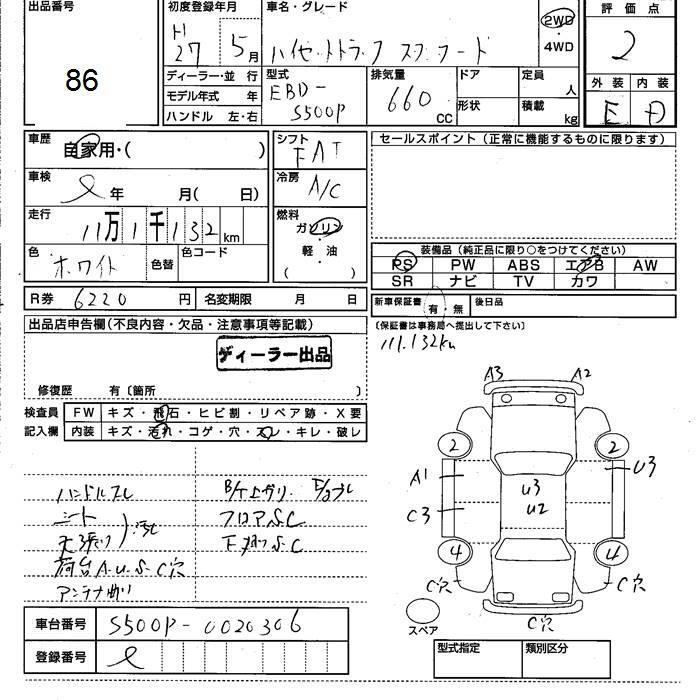 出品番号
86
初度登録年月
H 27 年 5 月
車名・グレード
ハイゼットトラック スタンダード
2WD
・
4WD
評価点
2
ディーラー・並 行
モデル年式 年
ハンドル 左・右
型式
EBD-
S500P
排気量
660
CC
ドア
形状
定員
人
積載
kg
外装 内装
E D
車歴
自家用・( )
車検
年 月( 日)
走行
11万1千132km
色
ホワイト
色替
色コード
シフト
FAT
冷房
A/C
燃料
ガソリン
・
軽・油
( )
セールスポイント (正常に機能するものに限ります)
装備品 (純正品に限り○をつけてください)
PS PW ABS エアB AW
SR ナビ TV カワ
R券 6220 円 名変期限 月 日
新車保証書 有・無 後日品
(保証書は事務局へ提出して下さい)
111,132km
出品店申告欄(不良内容・欠品・注意事項等記載)
ディーラー出品
修復歴 有〔箇所 〕
検査員
記入欄
FW キズ・飛石・ヒビ割・リペア跡・X要
内装 キズ・汚れ・コゲ・穴・スレ・キレ・破レ
ハンドルスレ
シート
天張り
汚れ
荷台A.U.S.C穴
アンテナ曲り
B/下廻り
フロアS.C
下廻りS.C
A3 A2
2 2
A1 U3
U3
C3 U2
4 4
C穴 C穴
C穴
スペア
車台番号 S500P-0020306
登録番号
型式指定 類別区分